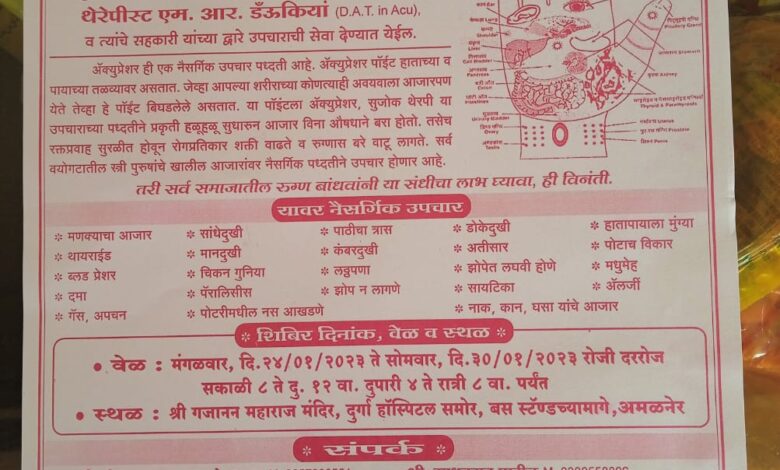 थेरेपीस्ट एम. आर. डॅंऊकियां (D.A.T. in Acu),
व त्यांचे सहकारी यांच्या द्वारे उपचाराची सेवा देण्यात येईल.
ॲक्युप्रेशर ही एक नैसर्गिक उपचार पध्दती आहे. ॲक्युप्रेशर पॉईंट हाताच्या व
पायाच्या तळव्यावर असतात. जेव्हा आपल्या शरीराच्या कोणत्याही अवयवाला आजारपण
येते तेव्हा हे पॉईंट बिघडलेले असतात. या पॉईंटला ॲक्युप्रेशर, सुजोक थेरपी या
उपचाराच्या पध्दतीने प्रकृती हळूहळू सुधारुन आजार विना औषधाने बरा होतो. तसेच
रक्तप्रवाह सुरळीत होवून रोगप्रतिकार शक्ती वाढते व रुग्णास बरे वाटू लागते. सर्व
वयोगटातील स्त्री पुरुषांचे खालील आजारांवर नैसर्गिक पध्दतीने उपचार होणार आहे.
Pituitary Gland
Shoulder
Liver
Gall Bladder
Pancreas
Kidney
Colon
Intestines
Thyroid & Parathyroids
Urinary Bladder
Ovary
Uterus
Prostate
Testis
Penis
तरी सर्व समाजातील रुग्ण बांधवांनी या संधीचा लाभ घ्यावा, ही विनंती.
यावर नैसर्गिक उपचार
* मणक्याचा आजार
* थायराईड
* ब्लड प्रेशर
* दमा
* गॅस, अपचन
* सांधेदुखी
* मानदुखी
* चिकन गुनिया
* पॅरालिसीस
* पोटरीमधील नस आखडणे
* पाठीचा त्रास
* कंबरदुखी
* लठ्ठपणा
* झोप न लागणे
* डोकेदुखी
* अतीसार
* झोपेत लघवी होणे
* सायटिका
* नाक, कान, घसा यांचे आजार
* हातापायाला मुंग्या
* पोटाच विकार
* मधुमेह
* ॲलर्जी
* शिबिर दिनांक, वेळ व स्थळ *
• वेळ : मंगळवार, दि.२४/०१/२०२३ ते सोमवार, दि.३०/०१/२०२३ रोजी दररोज
सकाळी ८ ते दु. १२ वा. दुपारी ४ ते रात्री ८ वा. पर्यंत
• स्थळ : श्री गजानन महाराज मंदिर, दुर्गा हॉस्पिटल समोर, बस स्टॅण्डच्यामागे, अमळनेर
* संपर्क *